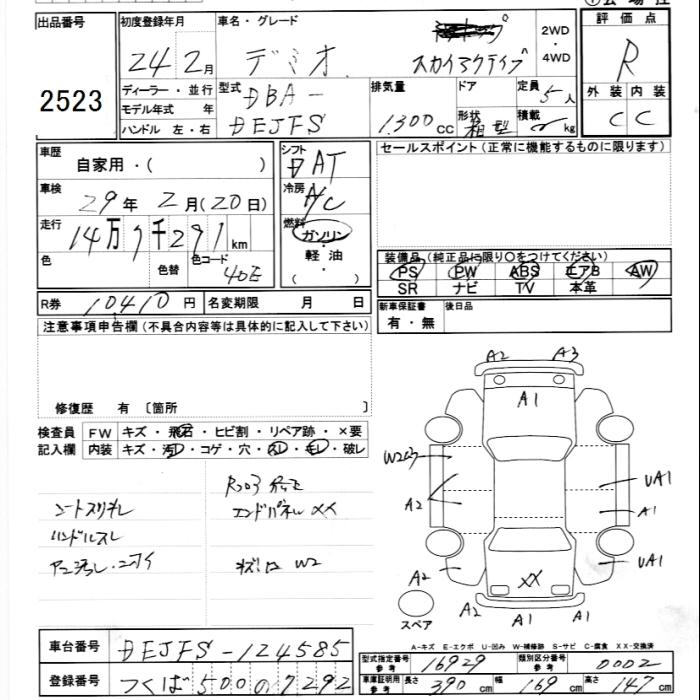 出品番号
2523
初度登録年月
24 2月
車名・グレード
デミオ
スカイアクティブ
2WD
・
4WD
評価点
R
外装 内装
C C
ディーラー・並行
モデル年式 年
ハンドル 左・右
型式
DBA-
DEJFS
排気量
1300cc
ドア
定員
5人
形状
箱型
積載
kg
車歴
自家用・( )
車検
29年 2月(20日)
走行
14万7千291km
色
色替
色コード
40E
シフト
DAT
冷房
A/C
燃料
ガソリン
・
軽油
・
( )
セールスポイント(正常に機能するものに限ります)
装備品(純正品に限り○をつけてください)
PS PW ABS エアB AW
SR ナビ TV 本革
R券 10410円 名変期限 月 日
新車保証書
有・無
後日品
注意事項申告欄(不具合内容等は具体的に記入して下さい)
修復歴 有 〔箇所 〕
検査員
記入欄
FW キズ・飛石・ヒビ割・リペア跡・×要
内装 キズ・汚レ・コゲ・穴・スレ・モレ・破レ
シートスリキレ
ハンドルスレ
R203
エンドパネル XX
W2
A2 A3
A1
A2
UA1
A1
A2
UA1
XX
A2 A1 A1
スペア
A-キズ E-エクボ U-凹み W-補修跡 S-サビ C-腐食 XX-交換済
車台番号 DEJFS-124585
登録番号 つくば500の7292
型式指定番号
参考
16929
類別区分番号
参考
0002
車庫証明用
参考
長さ 390cm 幅 169cm 高さ 147cm